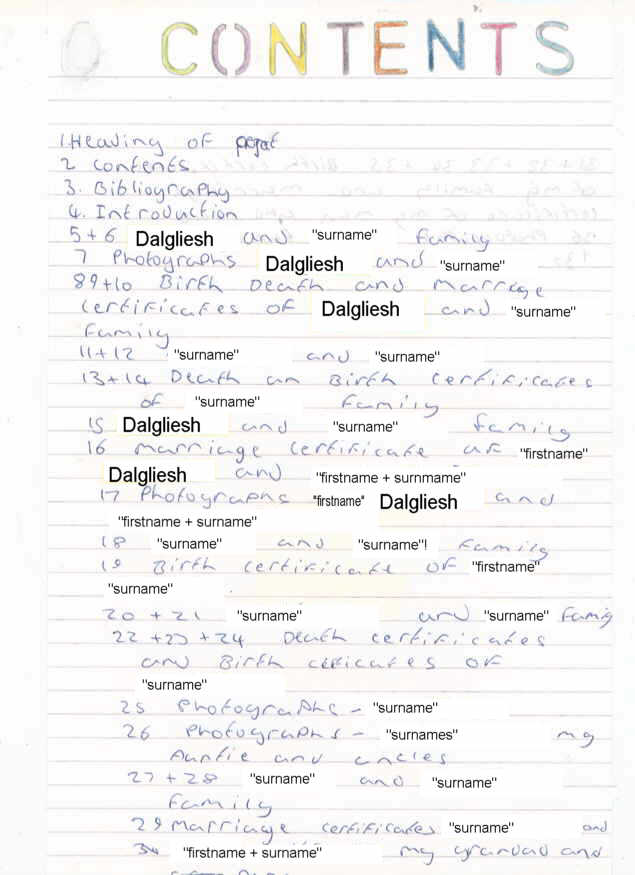 CONTENTS
1. Heading of
2 Contents
3. Bibliography
4. Introduction
5+6 Dalgliesh and "surname" family
7 Photographs Dalgliesh and "surname"
8 9+10 Birth Death and Marriage
certificates of Dalgliesh and "surname"
family
11+12 "surname" and "surname"
13+14 Death an Birth certificates
of "surname" family
15 Dalgliesh and "surname" family
16 marriage certificate of "firstname"
Dalgliesh and "firstname + surnmame"
17 Photographs "firstname" Dalgliesh and
"firstname + surname"
18 "surname" and "surname"! family
19 Birth certificate of "firstname"
"surname"
20 + 21 "surname" and "surname" family
22 +23 +24 Death certificates
and Birth cificates of
"surname"
25 Photographs - "surname"
26 Photographs - "surnames" my
Auntie and uncles
27 + 28 "surname" and "surname"
family
29 marriage certificates "surname" and
"firstname + surname" my grandad and